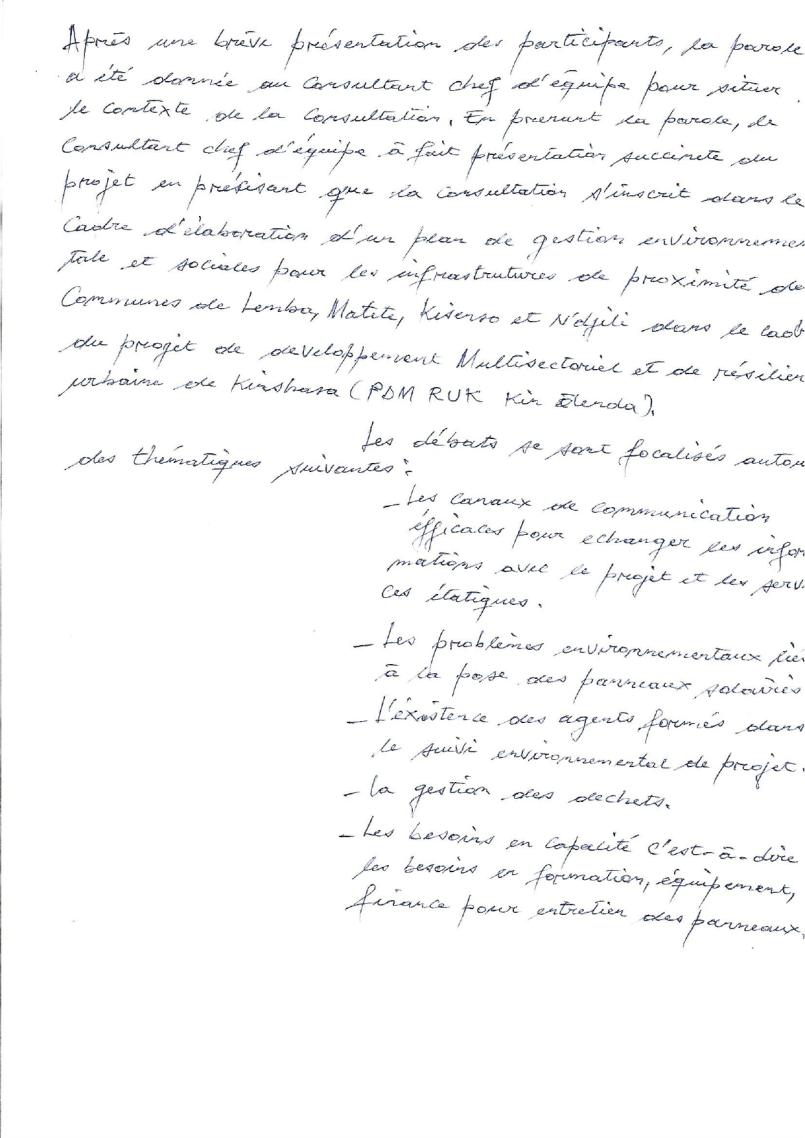 Après une brève présentation des participants, la parole
a été donnée au Consultant chef d'équipe pour situer
le contexte de la Consultation. En prenant la parole, le
Consultant chef d'équipe à fait présentation succincte du
projet en présisant que la consultation s'inscrit dans le
Cadre d'élaboration d'un plan de gestion environnemen
tale et sociales pour les infrastrutures de proximité de
Communes de Lemba, Matete, Kisenso et N'djili dans le cad
du projet de developpement Multisectoriel et de résilien
urbaine de Kinshasa (PDM RUK Kin Elenda).
Les débats se sont focalisés autou
des thématiques suivantes :
- Les canaux de communication
éfficaces pour echanger les infor
mations avec le projet et les serv
ces étatiques.
- Les problèmes environnementaux liés
à la pose des panneaux solairés
- L'éxistence des agents formés dans
le suivi environnemental de projet.
- La gestion des dechets.
- Les besoins en capacité c'est-à-dire
les besoins en formation, équipement,
finance pour entretien des panneaux.